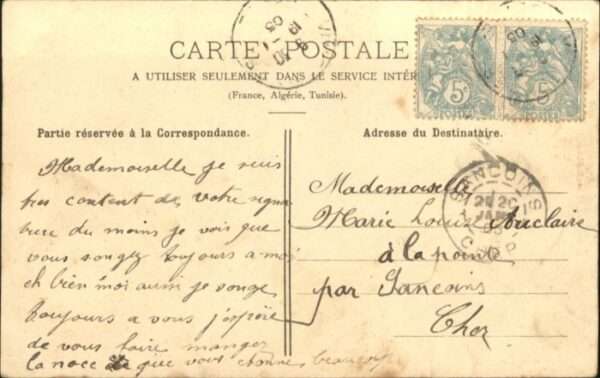 CARTE POSTALE
A UTILISER SEULEMENT DANS LE SERVICE INTÉR
(France, Algérie, Tunisie).
Partie réservée à la Correspondance.
Mademoiselle je suis
tres content de votre signa
ture du moins je vois que
vous songez toujours a moi
eh bien moi aussi je songe
toujours a vous j'espère
de vous faire manger
la noce que vous
Adresse du Destinataire.
Mademoiselle
Marie Louise Auclaire
à la pointe
par Sancoins
Cher
5c
5c
SANCOINS
CHER